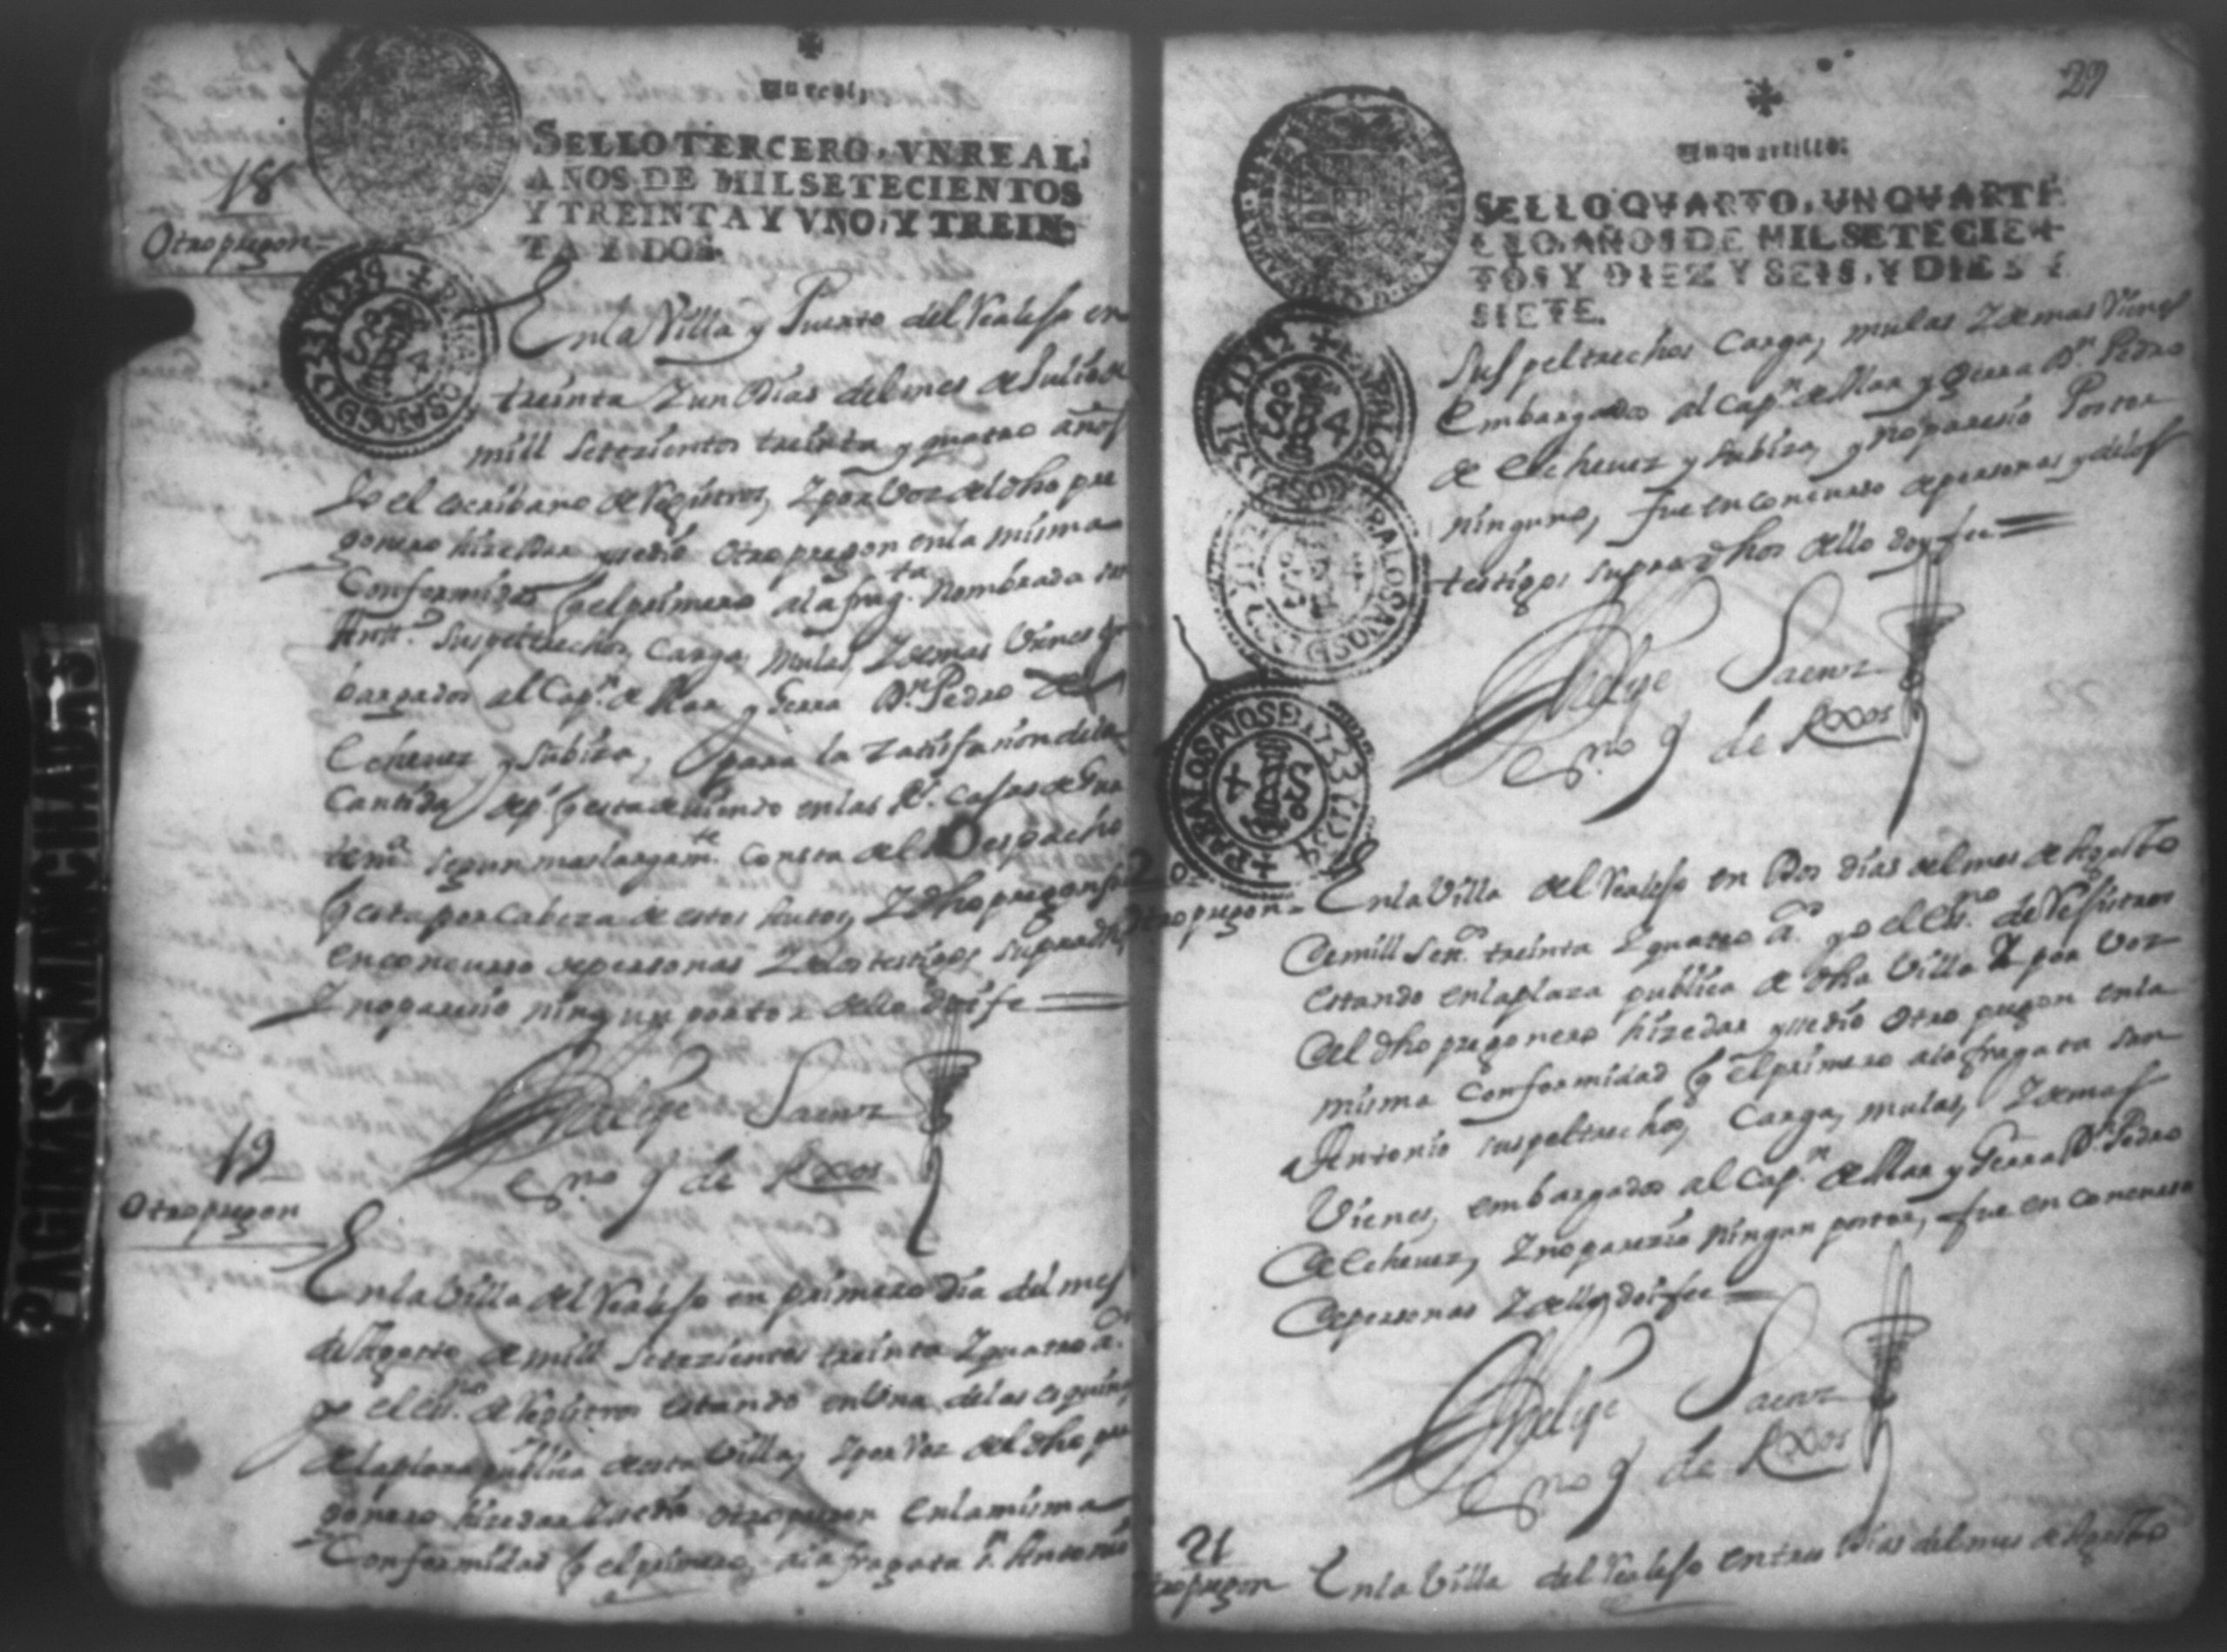 Un real,
SELLO TERCERO, VN REAL,
AÑOS DE MIL SETECIENTOS
Y TREINTA Y VNO, Y TREIN-
TA Y DOS.
18
Otro pregon
En la Villa y Puerto del Realejo en
treinta Z un Dias del mes de Julio de
mill Setezientos treinta y quatro años
Yo el escribano de Registros, Z por Voz del dho pre
gonero hize dar y se dio Otro pregon en la misma
Conformidad q el primero a la frag.ta Nombrada sn
Antt.o sus peltrechos, Carga, Mulas, Z demas Vienes em
bargados al Cap.n de Mar y Gerra Dn Pedro de
Echeuez y Subiza, para la zatisfazion de la
Cantidad de p.s q esta deuiendo en las R.s Casas de Gua
tem.a segun mas largam.te Consta del Despacho
q esta por Cabeza de estos Autos, Z dho pregon fue
en concurso de personas Z de los testigos supradhos
Z no paresio ningun postor dello doi fe
Phelipe Saenz
es.no q de Rxxos
19
Otro pregon
En la Villa del Realejo en primero Dia del mes
de Agosto de mill Setezientos treinta Z quatro a.os
yo el Es.no de Registros estando en Una de las esquinas
de la plaza publica de esta Villa, Z por Voz del dho pre
gonero hize dar Z se dio otro pregon en la misma
Conformidad q el primero, a la fragata Sn Antonio
PAGINAS MANCHADAS
29
Un quartillo:
SELLO QVARTO, VN QVARTI-
LLO, AÑOS DE MIL SETECIEN-
TOS Y DIEZ Y SEIS, Y DIEZ Y
SIETE.
Sus peltrechos Carga, mulas Z demas Vienes
Embargados al Cap.n de Mar y Gerra Dn Pedro
de Echeuez y Subiza, y no paresio Postor
ninguno, fue en concurso de personas y de los
testigos supradhos dello doy fee
Phelipe Saenz
es.no q de Rxxos
PARA LOS AÑOS DE 1733 Y 1734
20
Otro pregon
En la Villa del Realejo en Dos dias del mes de Agosto
de mill Seten.os treinta Z quatro a.os yo el Es.no de Registros
estando en la plaza publica de dha Villa Z por Voz
del dho pregonero hize dar y se dio Otro pregon en la
misma Conformidad q el primero a la fragata San
Antonio sus peltrechos, Carga, mulas, Z demas
Vienes, embargados al Cap.n de Mar y Gerra Dn Pedro
de Echeuez, Z no parezio Ningun postor, fue en concurso
de personas Z dello doi fee
Phelipe Saenz
es.no q de Rxxos
21
Otro pregon
En la Villa del Realejo en tres Dias del mes de Agosto